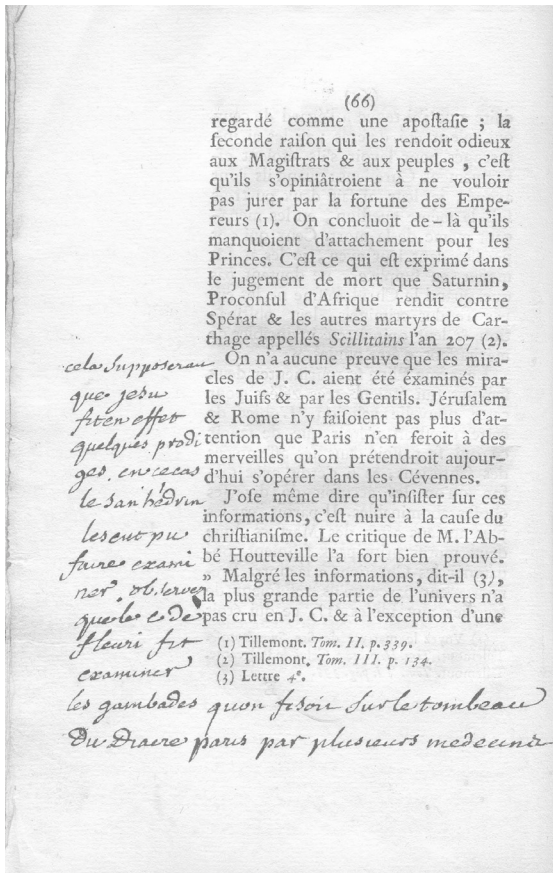 (66)
regardé comme une apoſtaſie ; la
ſeconde raiſon qui les rendoit odieux
aux Magiſtrats & aux peuples , c'eſt
qu'ils s'opiniâtroient à ne vouloir
pas jurer par la fortune des Empe-
reurs (1). On concluoit de-là qu'ils
manquoient d'attachement pour les
Princes. C'eſt ce qui eſt exprimé dans
le jugement de mort que Saturnin,
Proconſul d'Afrique rendit contre
Spérat & les autres martyrs de Car-
thage appellés Scillitains l'an 207 (2).
On n'a aucune preuve que les mira-
cles de J. C. aient été éxaminés par
les Juifs & par les Gentils. Jéruſalem
& Rome n'y faiſoient pas plus d'at-
tention que Paris n'en feroit à des
merveilles qu'on prétendroit aujour-
d'hui s'opérer dans les Cévennes.
J'oſe même dire qu'inſiſter ſur ces
informations, c'eſt nuire à la cauſe du
chriſtianiſme. Le critique de M. l'Ab-
bé Houtteville l'a fort bien prouvé.
» Malgré les informations, dit-il (3),
la plus grande partie de l'univers n'a
pas cru en J. C. & à l'exception d'une
(1) Tillemont. Tom. II. p. 339.
(2) Tillemont. Tom. III. p. 134.
(3) Lettre 4e.
cela supposerau
que jesu
fit en effet
quelques prodi
ges. en ce cas
le sanhédrin
les eut pu
faire exami
ner. observez
que le c de
fleuri fit
examiner
les gambades quon fesoit sur le tombeau
Du Diacre paris par plusieurs medecins